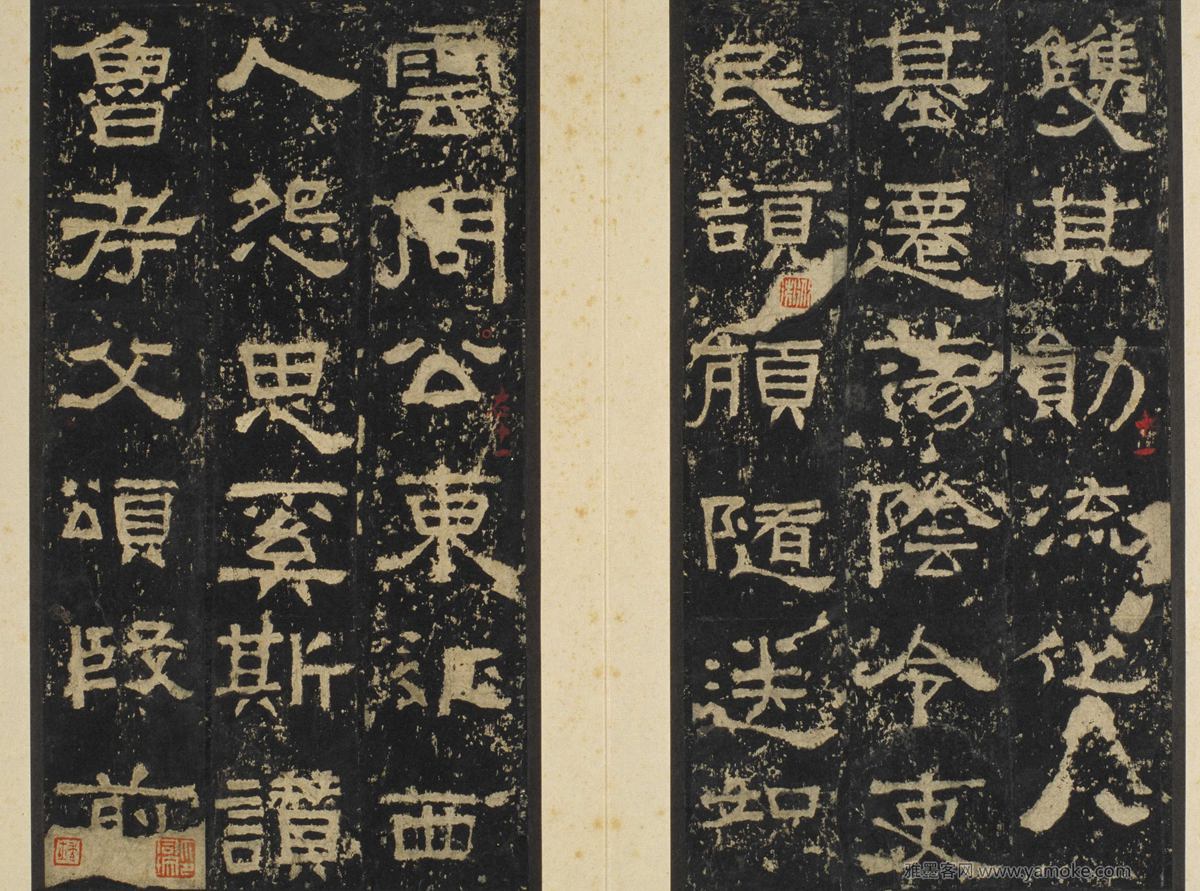 雙其勛流化八
基遷蕩陰令吏
民頡頏隨送如
雲周公東征西
人怨思奚斯讚
魯考父頌殷前
雅墨客网 www.yamoke.com